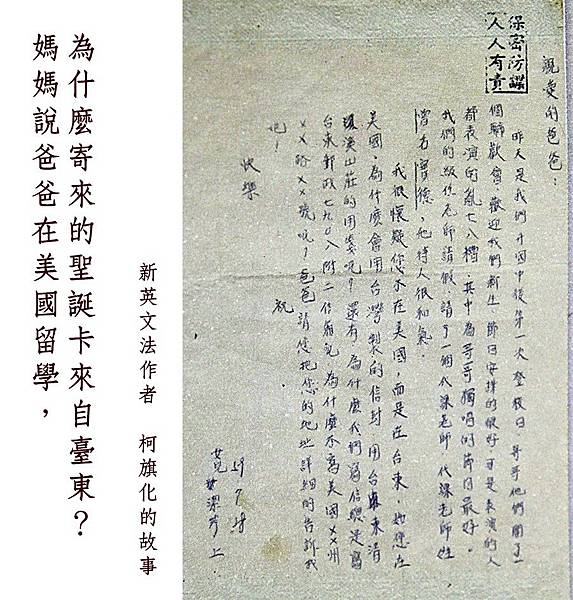 媽媽說爸爸在美國留學，
為什麼寄來的聖誕卡來自臺東？
新英文法作者 柯旗化的故事
保密防諜
人人有責
親愛的爸爸：
昨天是我們升國中後第一次登校日，哥哥他們開了一
個聯歡會，歡迎我們新生，節目安排的很好，可是表演的人
都表演的亂七八糟，其中為哥哥獨唱的節目最好。
我們的級任老師請假，請了一個代課老師，代課老師姓
曾名寶德，他待人很和氣。
我很懷疑您不在美國，而是在台東，如您在
美國，為什麼會用台灣製的信封，用台東清
溪山莊的用箋呢？還有為什麼我們寫信總是寫
台東郵政七九〇八附二信箱呢，為什麼不寫美國××州
××路××號呢？爸爸請您把您的地址詳細的告訴我
吧！ 祝
快樂
女兒 潔芳 上
59.7.28